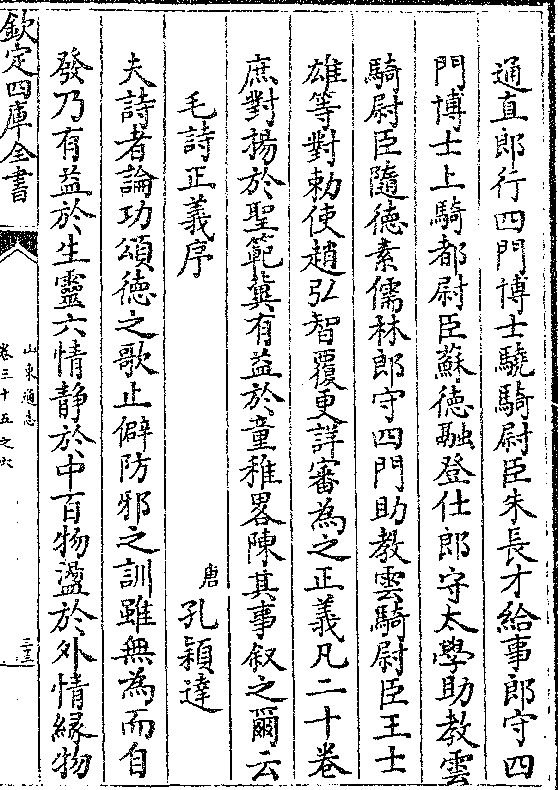 通直郎行四門博士驍騎尉臣朱長才給事郎守四
門博士上騎都尉臣蘇德融登仕郎守太學助教雲
騎尉臣隨德素儒林郎守四門助教雲騎尉臣王士
雄等對勅使趙弘智覆更詳審為之正義凡二十卷
庶對揚於聖範冀有益於童稚畧陳其事叙之爾云
毛詩正義序
唐 孔穎達
夫詩者論功頌德之歌止僻防邪之訓雖無為而自
發乃有益於生靈六情静於中百物盪於外情縁物
欽定四庫全書
山東通志
卷三十五之六
三三